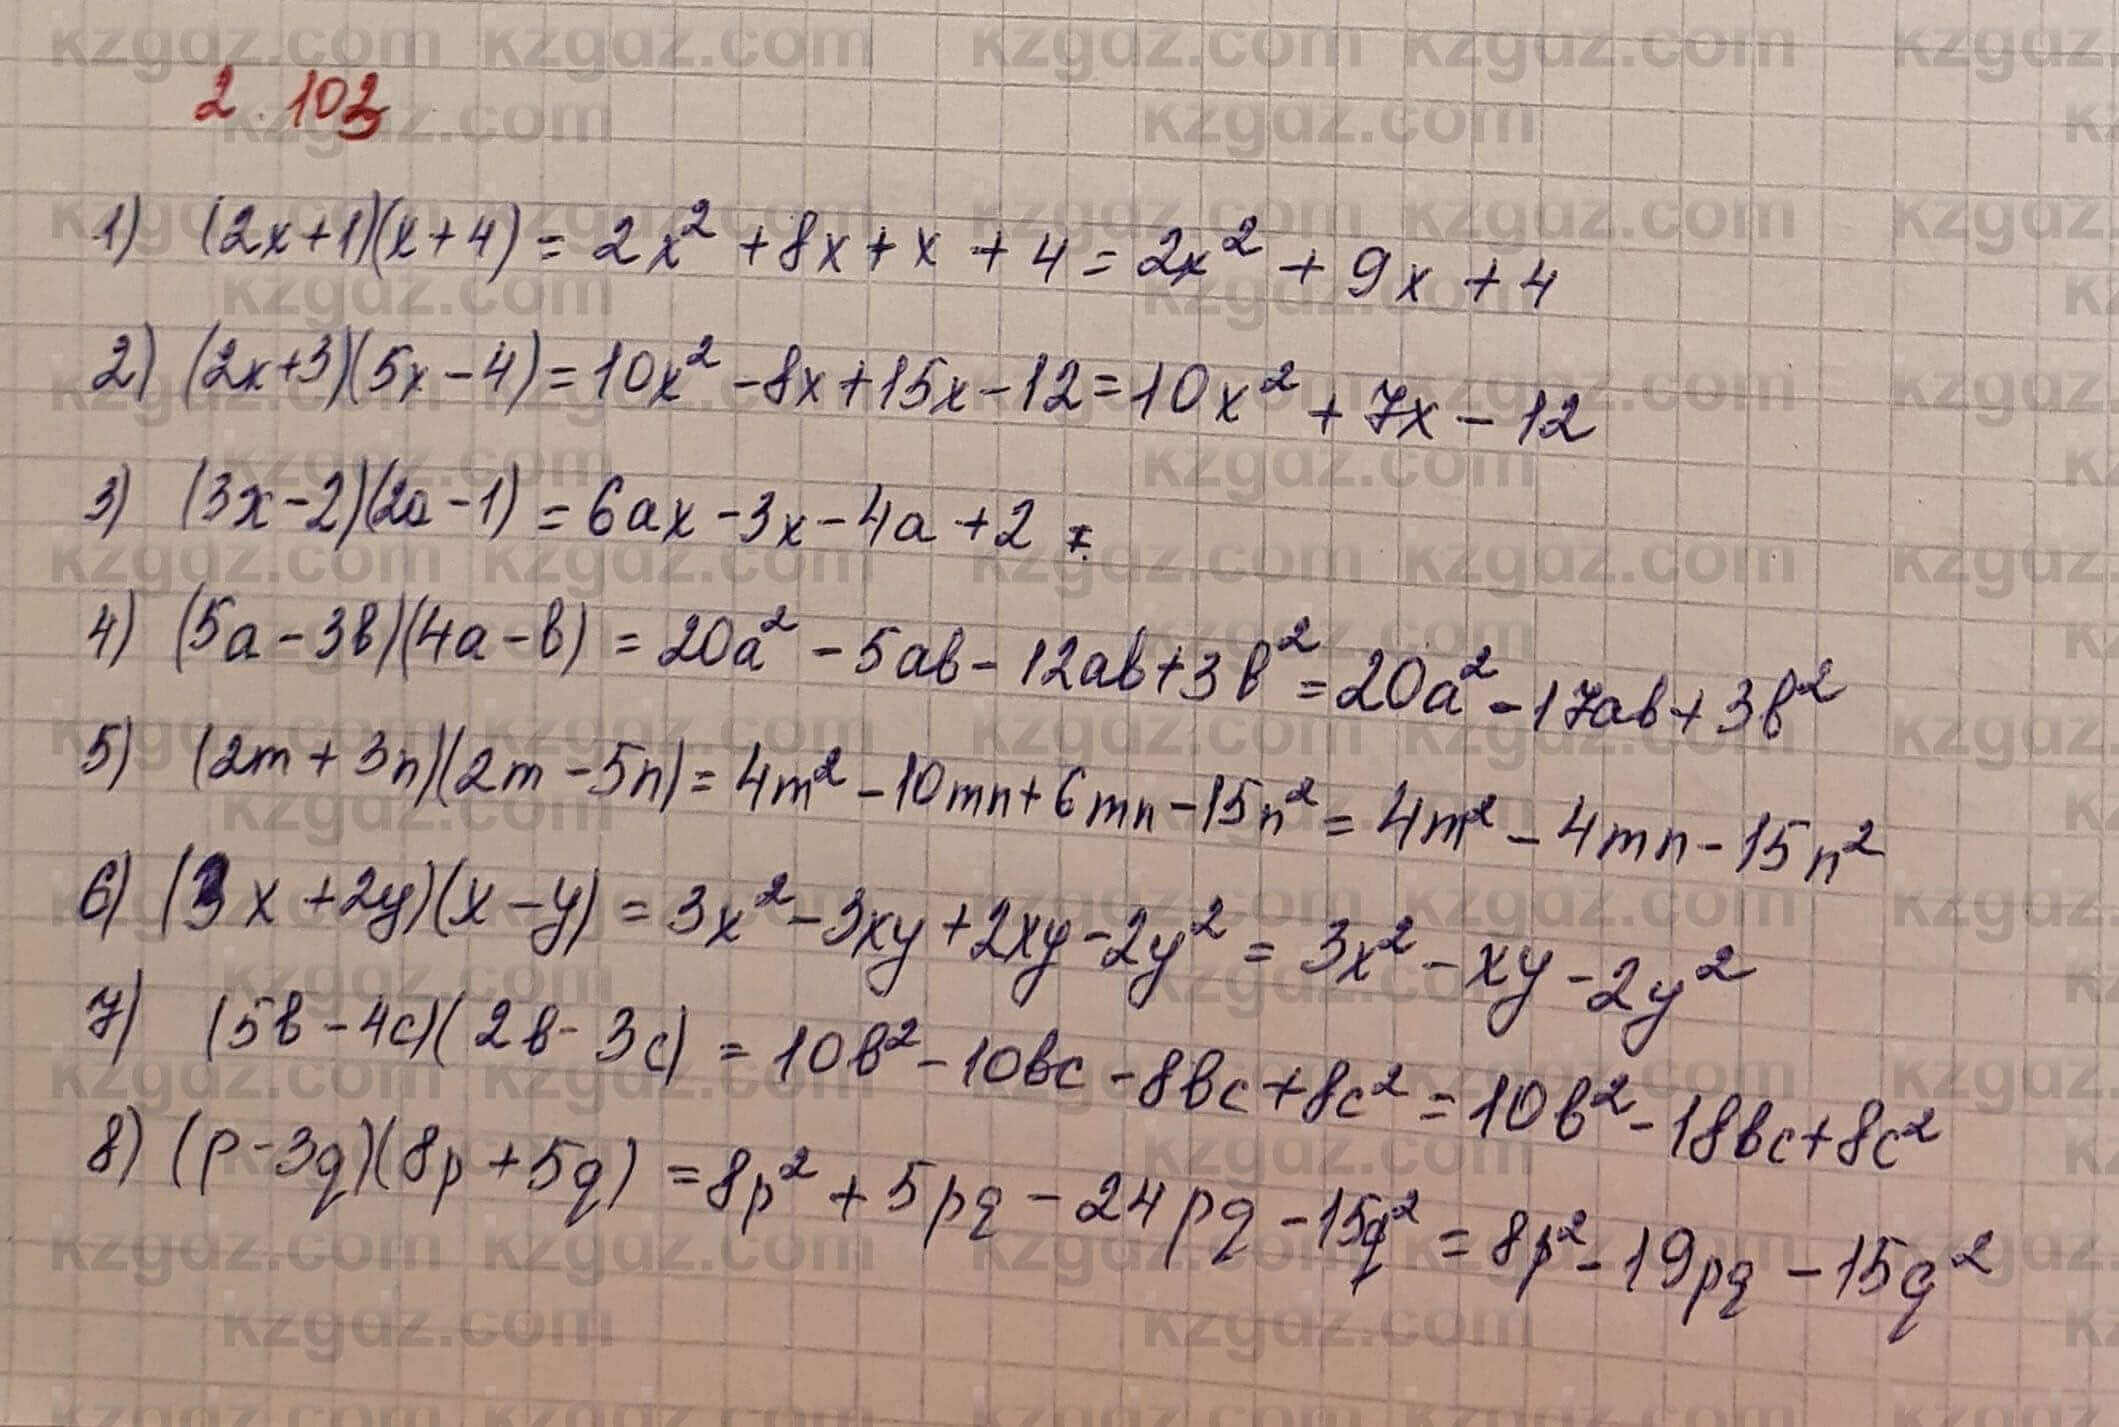 2.103
1) (2x+1)(x+4) = 2x² + 8x + x + 4 = 2x² + 9x + 4
2) (2x+3)(5x-4) = 10x² - 8x + 15x - 12 = 10x² + 7x - 12
3) (3x-2)(2a-1) = 6ax - 3x - 4a + 2
4) (5a-3b)(4a-b) = 20a² - 5ab - 12ab + 3b² = 20a² - 17ab + 3b²
5) (2m+3n)(2m-5n) = 4m² - 10mn + 6mn - 15n² = 4m² - 4mn - 15n²
6) (3x+2y)(x-y) = 3x² - 3xy + 2xy - 2y² = 3x² - xy - 2y²
7) (5b-4c)(2b-3c) = 10b² - 10bc - 8bc + 8c² = 10b² - 18bc + 8c²
8) (p-3q)(8p+5q) = 8p² + 5pq - 24pq - 15q² = 8p² - 19pq - 15q²
kzgdz.com